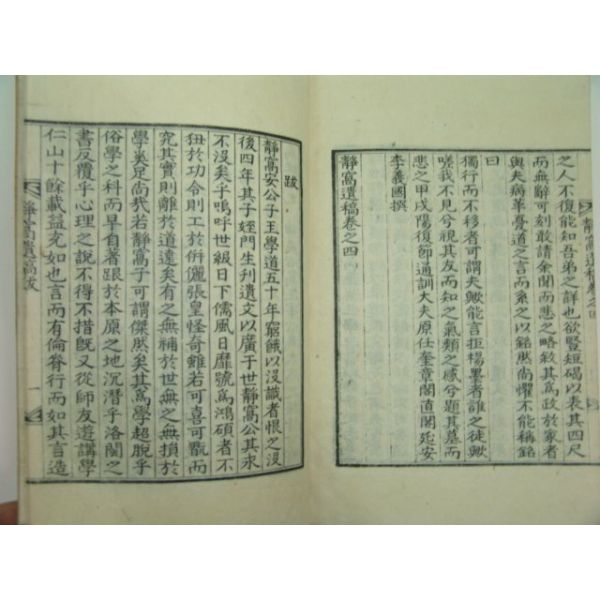 之人不復能知吾弟之詳也欲豎短碣以表其四尺
而無辭可刻敢請余聞而悲之略敘其爲政於家者
與夫病革憂道之言而系之以銘然尚懼不能稱銘
曰
獨行而不移者可謂夫歟能言拒楊墨者誰之徒歟
嗟我不見兮視其友而知之氣類之感兮題其墓而
悲之甲戌陽復節通訓大夫原任奎章閣直閣延安
李義國撰
靜窩遺稿卷之四
靜窩遺稿卷之四
跋
靜窩安公子玉學道五十年窮餓以沒識者恨之沒
後四年其子姪門生刊遺文以廣于世靜窩公其永
不沒矣乎嗚呼世級日下儒風日靡號爲鴻碩者不
狃於功令則工於倂儷張皇怪奇雖若可喜可翫而
究其實則離於道遠矣有之無補於世無之無損於
學奚足尚哉若靜窩子可謂傑然矣其爲學超脫乎
俗學之科而早自著跟於本原之地沉潛乎洛閩之
書反覆乎心理之說不得不措旣又從師友遊講學
仁山十餘載益充如也言而有倫脊行而如其言造
靜窩遺稿跋
一